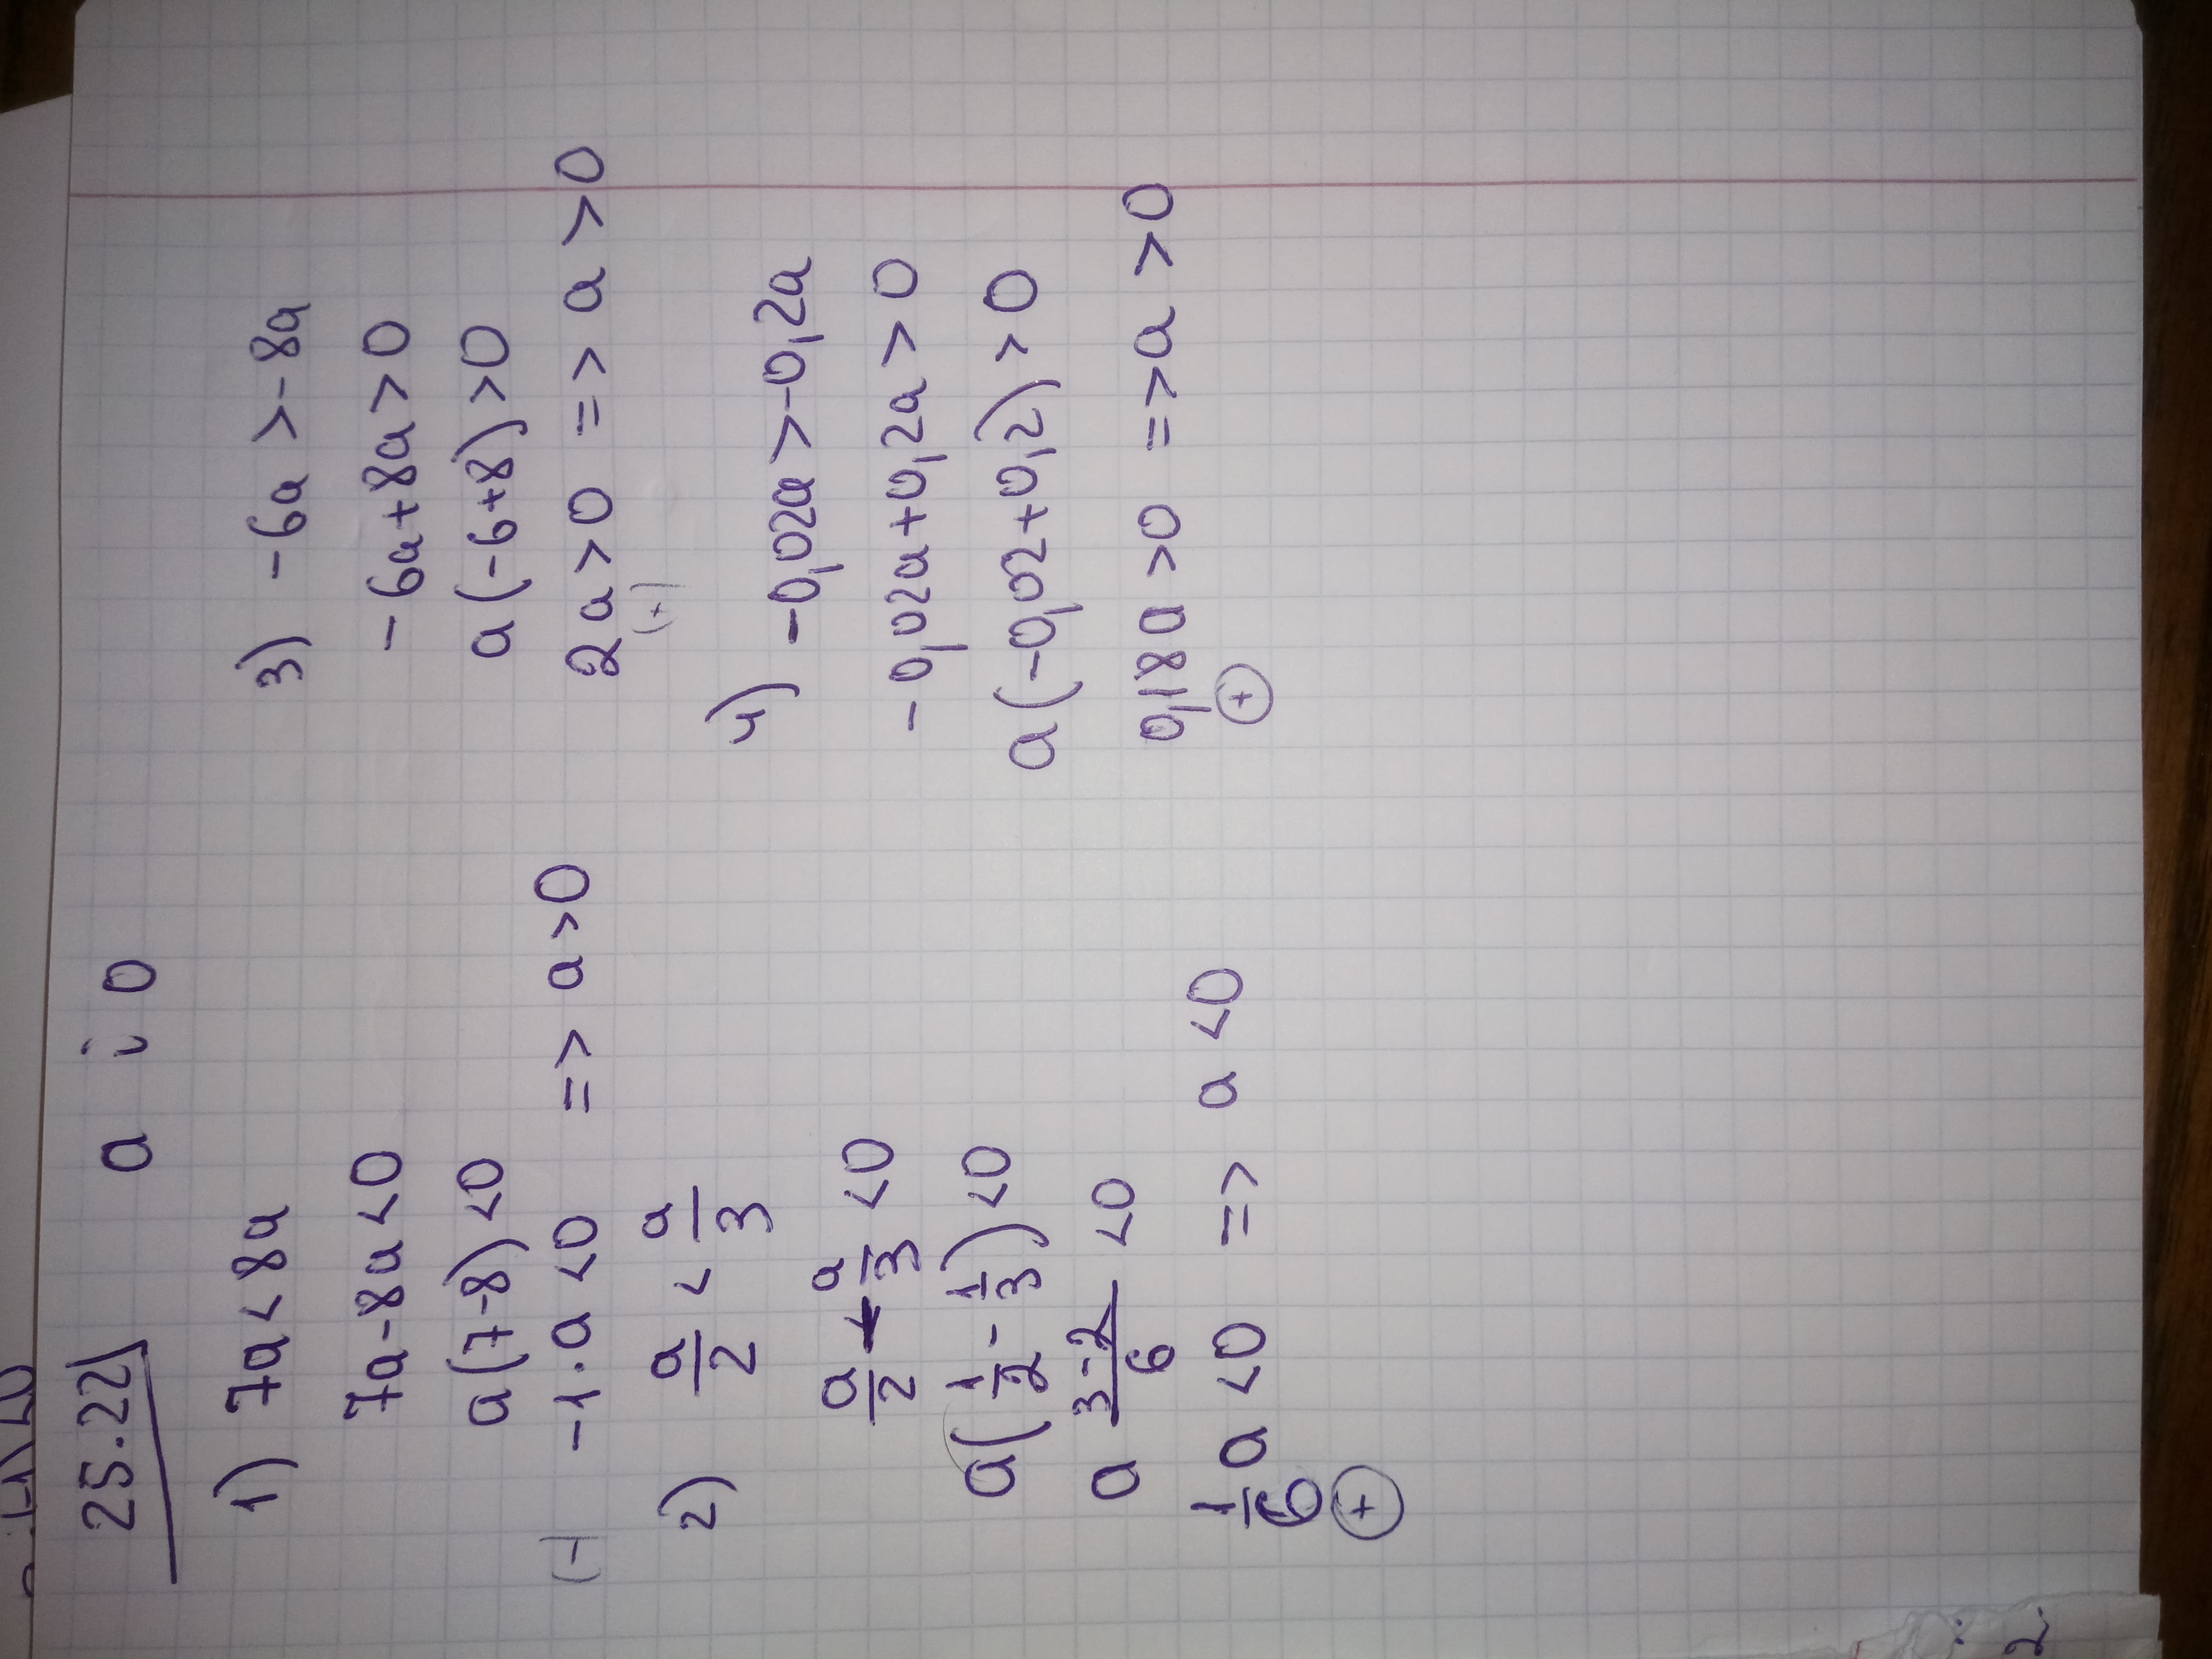 25.22 a і 0
1) 7a < 8a
7a - 8a < 0
a(7-8) < 0
-1·a < 0 => a > 0
(-)
2) a/2 < a/3
a/2 - a/3 < 0
a(1/2 - 1/3) < 0
a 3-2/6 < 0
1/6 a < 0 => a < 0
+
3) -6a > -8a
-6a + 8a > 0
a(-6+8) > 0
2a > 0 => a > 0
(+)
4) -0,02a > -0,2a
-0,02a + 0,2a > 0
a(-0,02 + 0,2) > 0
0,18a > 0 => a > 0
+